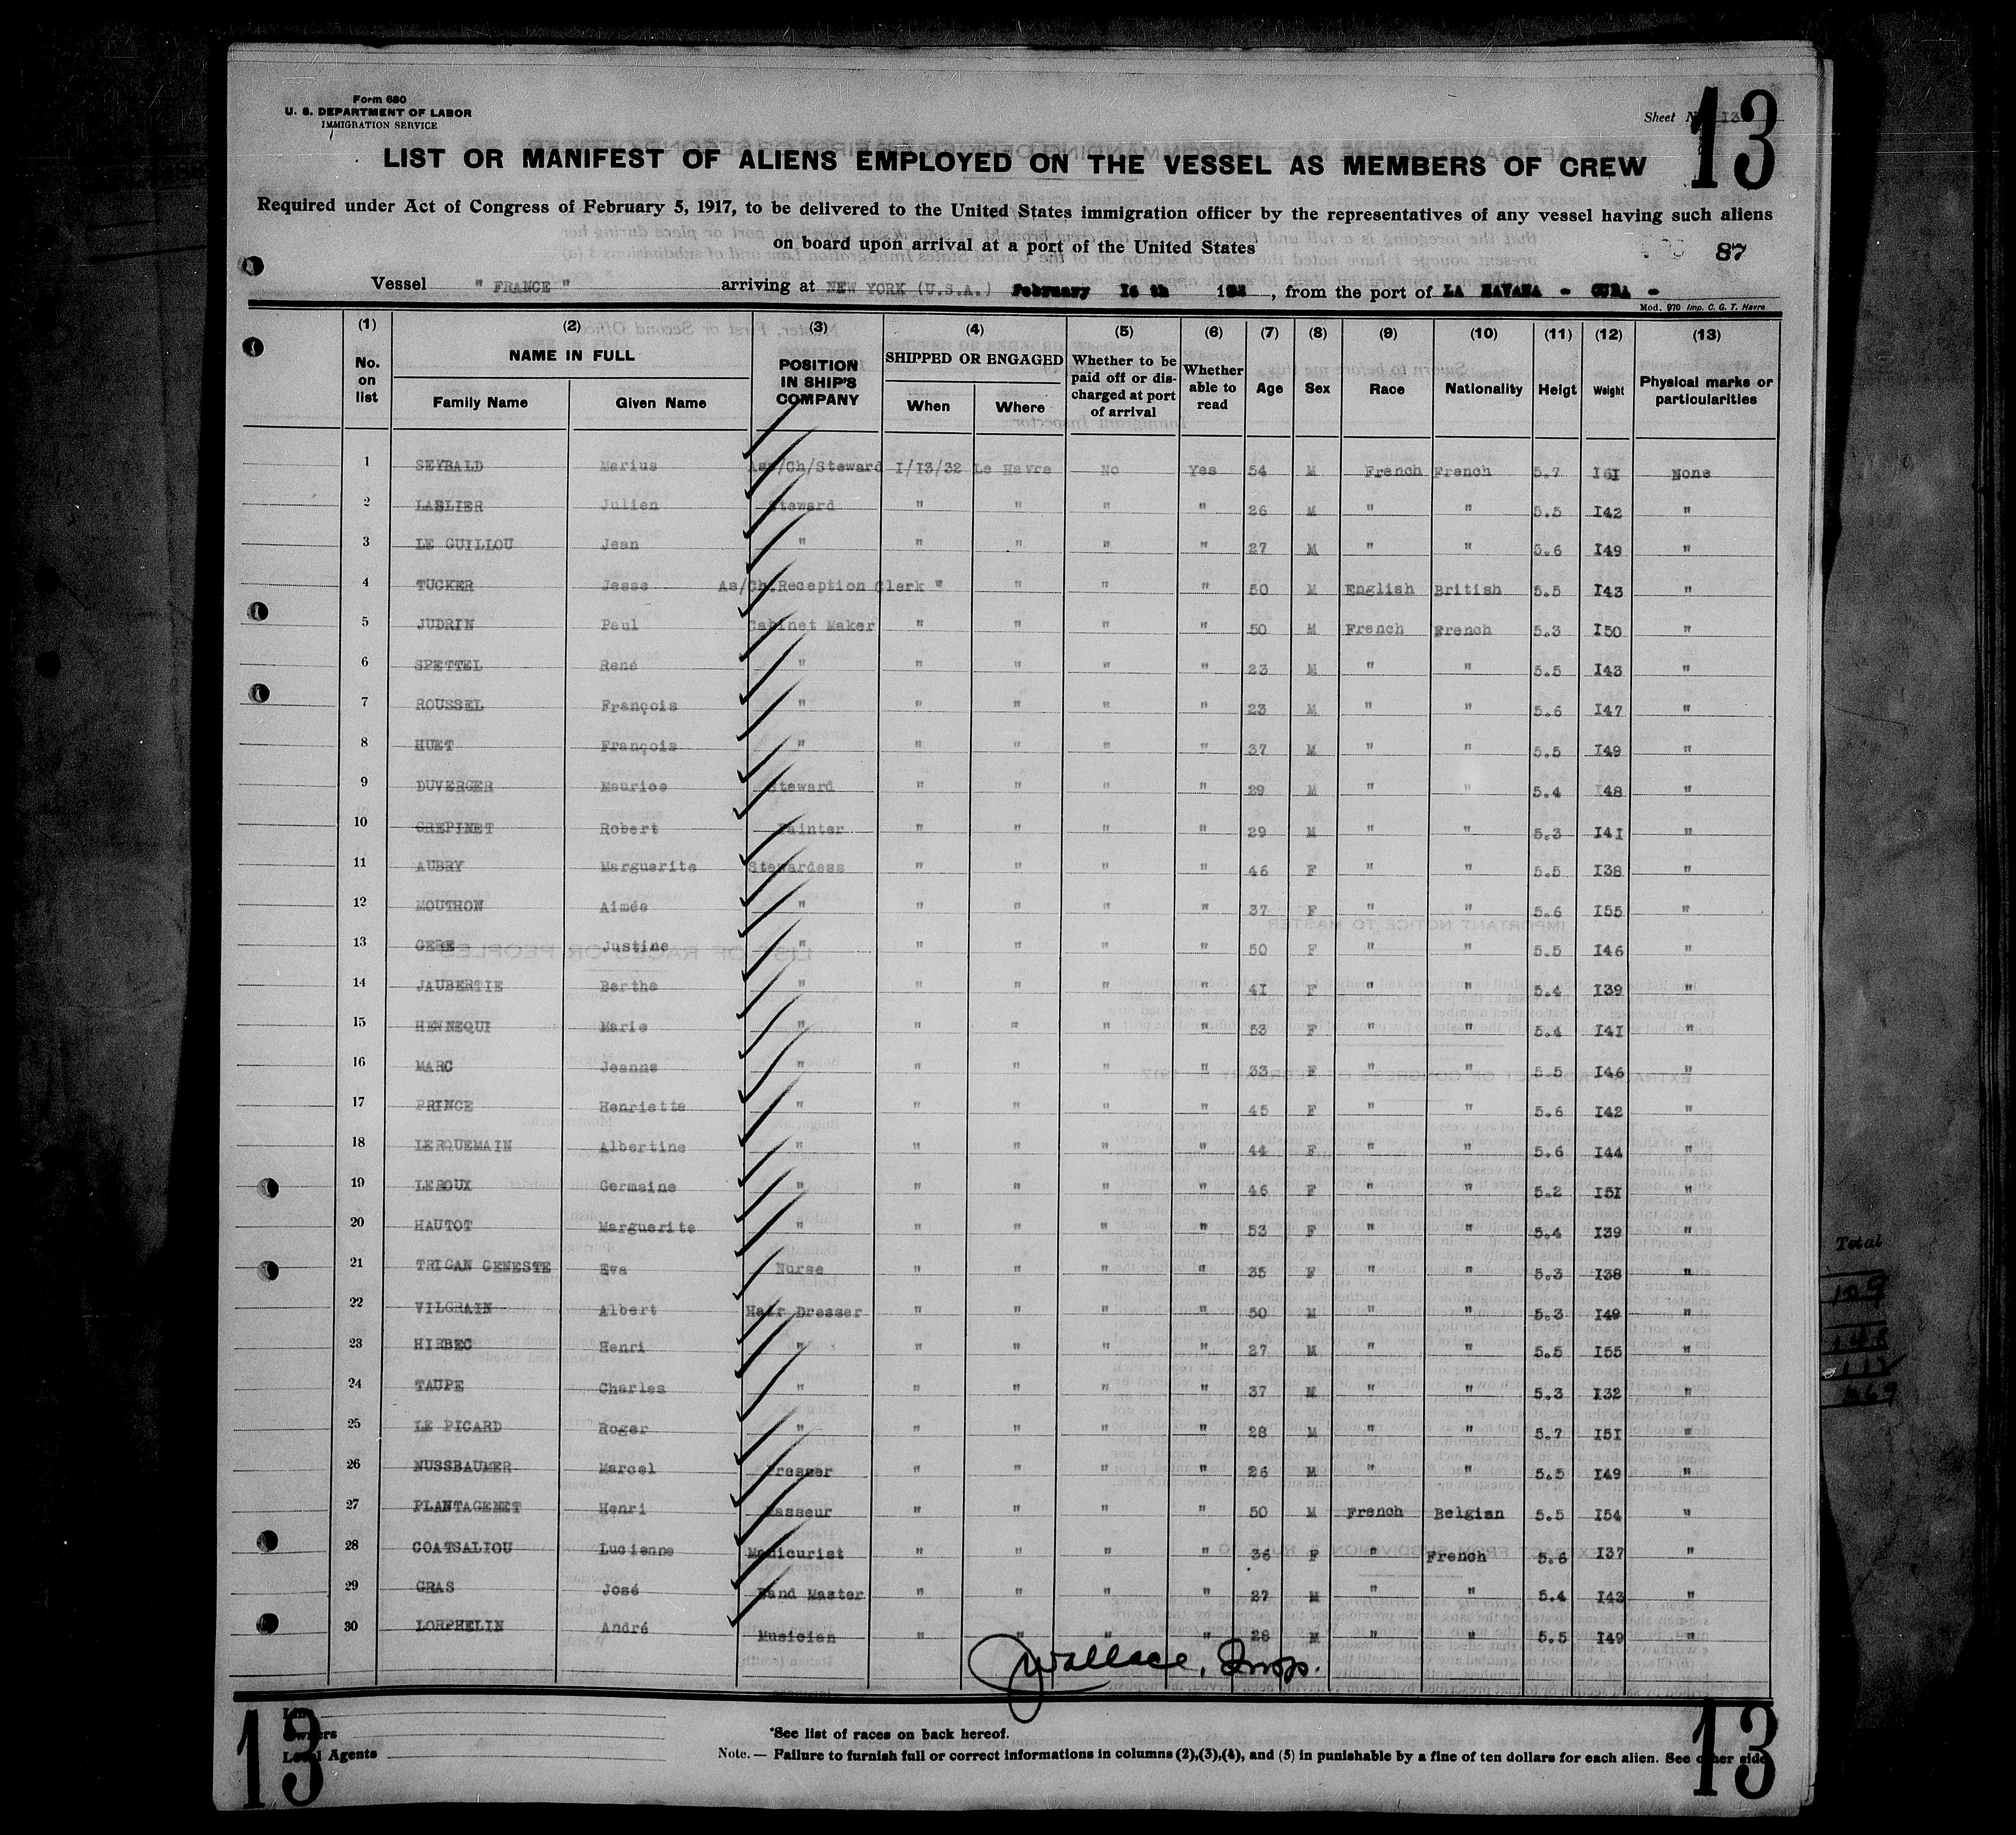 Form 680
U. S. DEPARTMENT OF LABOR
IMMIGRATION SERVICE
Sheet 13
13
LIST OR MANIFEST OF ALIENS EMPLOYED ON THE VESSEL AS MEMBERS OF CREW
Required under Act of Congress of February 5, 1917, to be delivered to the United States immigration officer by the representatives of any vessel having such aliens
on board upon arrival at a port of the United States
87
Vessel " FRANCE " arriving at NEW YORK (U.S.A.) February I6 th 193 , from the port of LA HAVANA - CUBA -
Mod. 970 Imp. C. G. T. Havre
(1) (2) (3) (4) (5) (6) (7) (8) (9) (10) (11) (12) (13)
No. on list NAME IN FULL Family Name Given Name POSITION IN SHIP'S COMPANY SHIPPED OR ENGAGED When Where Whether to be paid off or discharged at port of arrival Whether able to read Age Sex Race Nationality Heigt Weight Physical marks or particularities
1 SEYBALD Marius Ass/Ch/Steward I/I3/32 Le Havre No Yes 54 M French French 5.7 I6I None
2 LASLIER Julien Steward " " " " 26 M " " 5.5 I42 "
3 LE GUILLOU Jean " " " " " 27 M " " 5.6 I49 "
4 TUCKER Jesse As/Ch.Reception Clerk " " " " 50 M English British 5.5 I43 "
5 JUDRIN Paul Cabinet Maker " " " " 50 M French French 5.3 I50 "
6 SPETTEL René " " " " " 23 M " " 5.5 I43 "
7 ROUSSEL François " " " " " 23 M " " 5.6 I47 "
8 HUET François " " " " " 37 M " " 5.5 I49 "
9 DUVERGER Maurice Steward " " " " 29 M " " 5.4 I48 "
10 CREPINET Robert Painter " " " " 29 M " " 5.3 I4I "
11 AUBRY Marguerite Stewardess " " " " 46 F " " 5.5 I38 "
12 MOUTHON Aimée " " " " " 37 F " " 5.6 I55 "
13 GERE Justine " " " " " 50 F " " 5.5 I46 "
14 JAUBERTIE Berthe " " " " " 4I F " " 5.4 I39 "
15 HENNEQUI Marie " " " " " 53 F " " 5.4 I4I "
16 MARC Jeanne " " " " " 33 F " " 5.5 I46 "
17 PRINCE Henriette " " " " " 45 F " " 5.6 I42 "
18 LERQUEMAIN Albertine " " " " " 44 F " " 5.6 I44 "
19 LEROUX Germaine " " " " " 46 F " " 5.2 I5I "
20 HAUTOT Marguerite " " " " " 53 F " " 5.4 I39 "
21 TRIGAN GENESTE Eva Nurse " " " " 35 F " " 5.3 I38 "
22 VILGRAIN Albert Hair Dresser " " " " 50 M " " 5.3 I49 "
23 HIRBEC Henri " " " " " 27 M " " 5.5 I55 "
24 TAUPE Charles " " " " " 37 M " " 5.3 I32 "
25 LE PICARD Roger " " " " " 28 M " " 5.7 I5I "
26 NUSSBAUMER Marcel Presser " " " " 26 M " " 5.5 I49 "
27 PLANTAGENET Henri Masseur " " " " 50 M French Belgian 5.5 I54 "
28 COATSALIOU Lucienne Manicurist " " " " 36 F " French 5.6 I37 "
29 GRAS José Band Master " " " " 27 M " " 5.4 I43 "
30 LORPHELIN André Musician " " " " 28 M " " 5.5 I49 "
JWallace, Insp.
Owners
Local Agents
*See list of races on back hereof.
Note.— Failure to furnish full or correct informations in columns (2),(3),(4), and (5) in punishable by a fine of ten dollars for each alien. See other side
13
13
Total